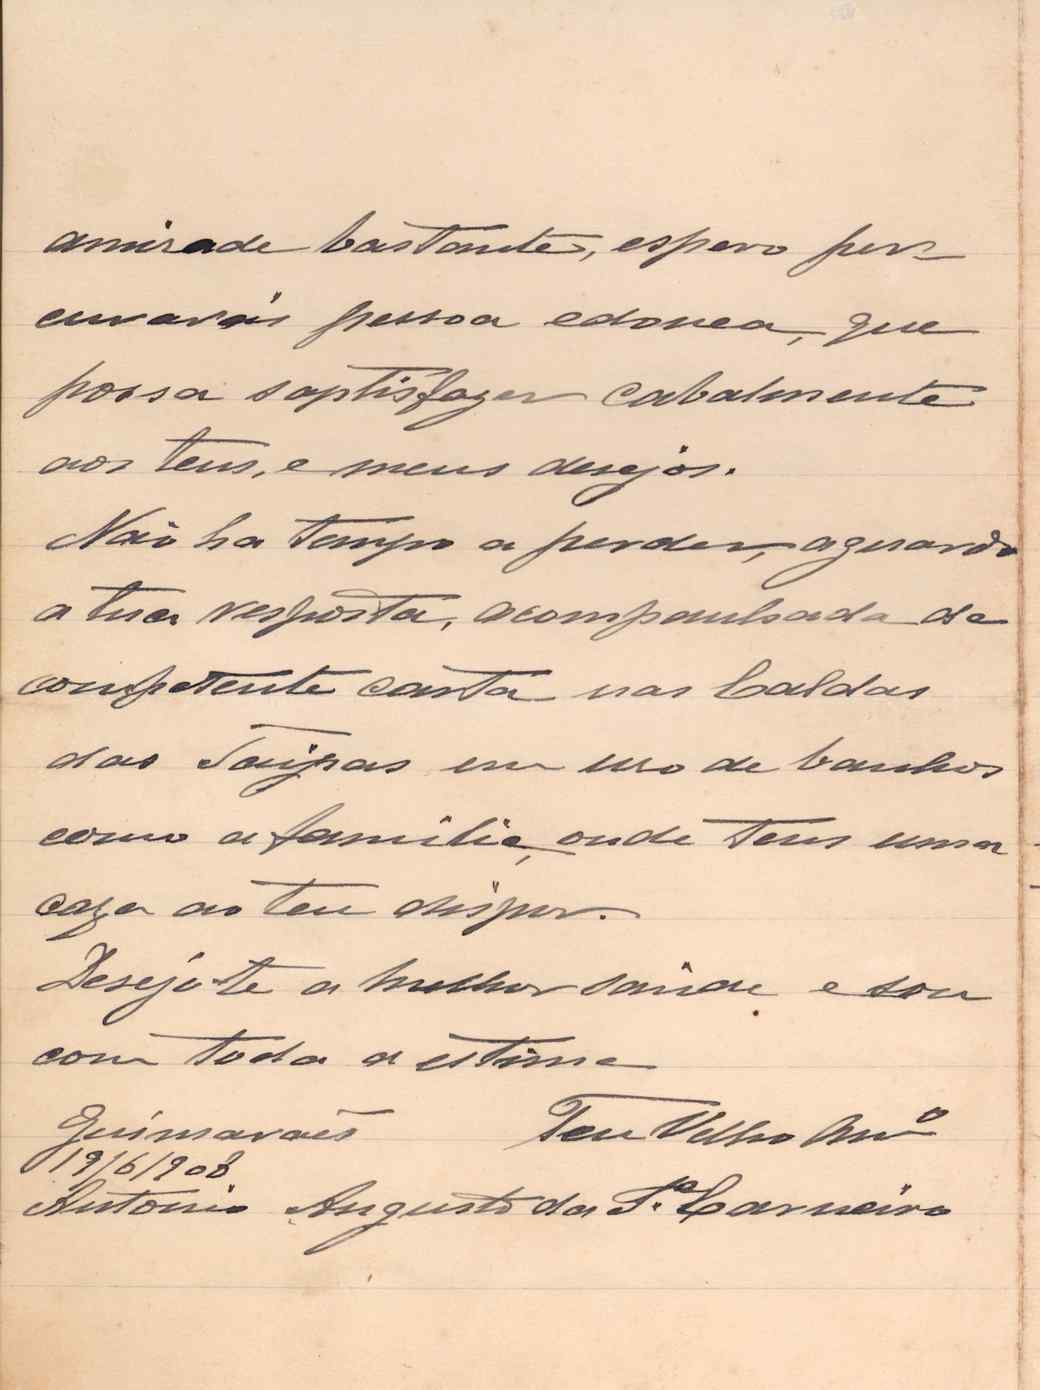 amizade bastante, espero per-
curarás pessoa edonea, que
possa saptisfazer cabalmente
aos teus, e meus desejos.
Não ha tempo a perder, aguardo
a tua resposta, acompanhada da
competente carta nas Caldas
das Taipas em uso de banhos
como a familia, onde tens uma
caza ao teu dispor.
Desejo-te a melhor saude e sou
com toda a estima
Guimarães Teu Velho Amº
19/6/908
Antonio Augusto da Sª Carneiro